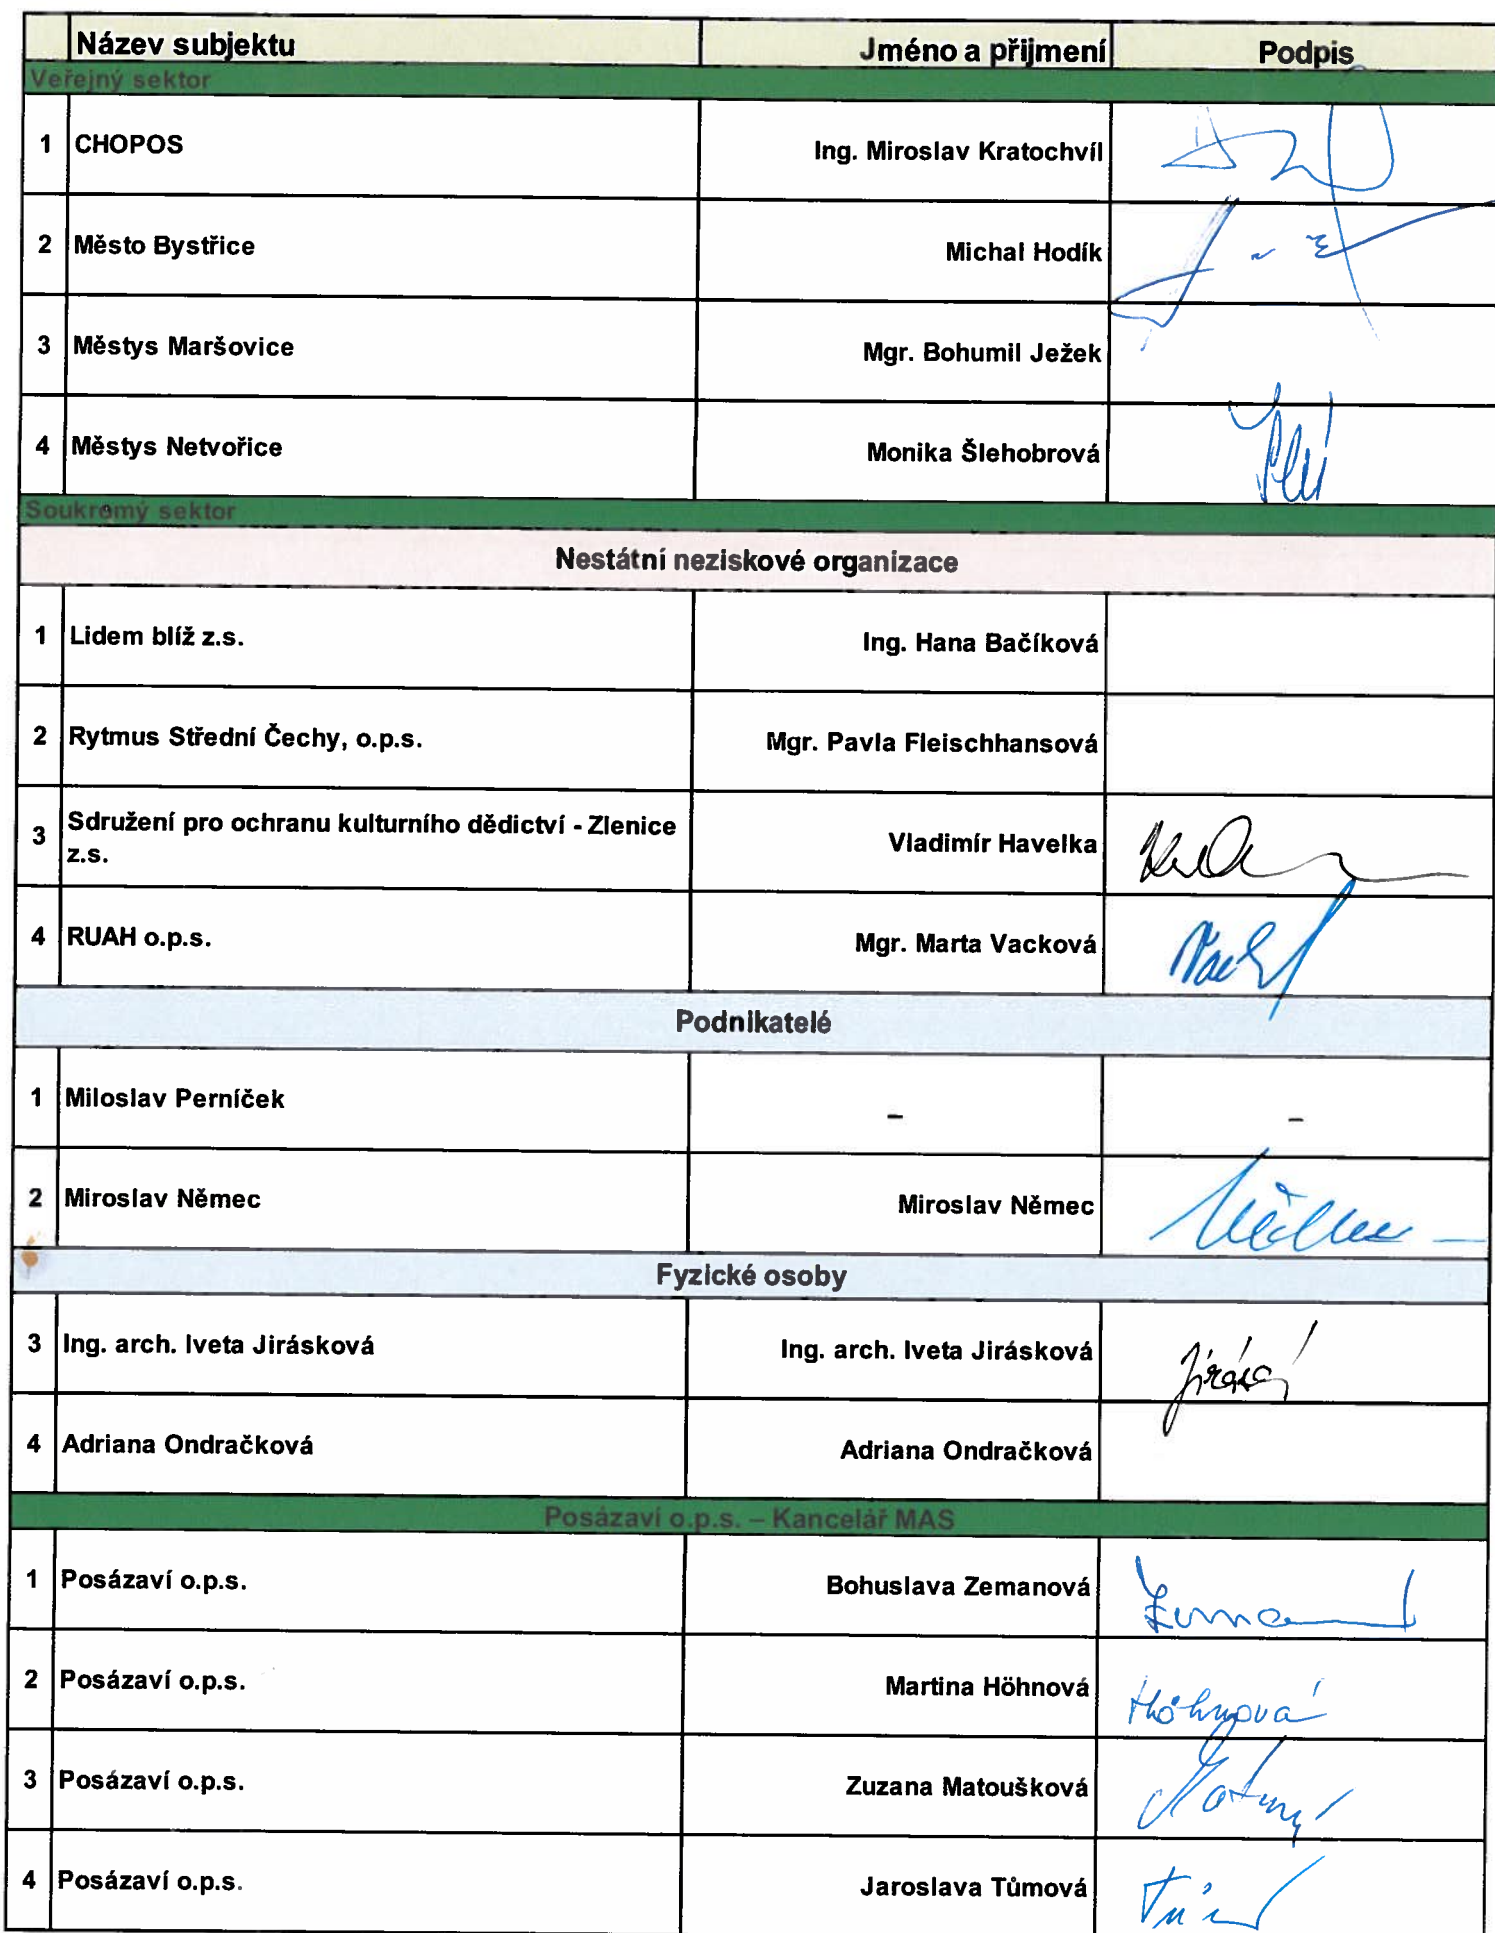 Název subjektu Jméno a přijmení Podpis
Veřejný sektor
1 CHOPOS Ing. Miroslav Kratochvíl
2 Město Bystřice Michal Hodík
3 Městys Maršovice Mgr. Bohumil Ježek
4 Městys Netvořice Monika Šlehobrová
Soukromý sektor
Nestátní neziskové organizace
1 Lidem blíž z.s. Ing. Hana Bačíková
2 Rytmus Střední Čechy, o.p.s. Mgr. Pavla Fleischhansová
3 Sdružení pro ochranu kulturního dědictví - Zlenice
z.s. Vladimír Havelka
4 RUAH o.p.s. Mgr. Marta Vacková
Podnikatelé
1 Miloslav Perníček – –
2 Miroslav Němec Miroslav Němec
Fyzické osoby
3 Ing. arch. Iveta Jirásková Ing. arch. Iveta Jirásková
4 Adriana Ondračková Adriana Ondračková
Posázaví o.p.s. – Kancelář MAS
1 Posázaví o.p.s. Bohuslava Zemanová
2 Posázaví o.p.s. Martina Höhnová Höhnová
3 Posázaví o.p.s. Zuzana Matoušková
4 Posázaví o.p.s. Jaroslava Tůmová